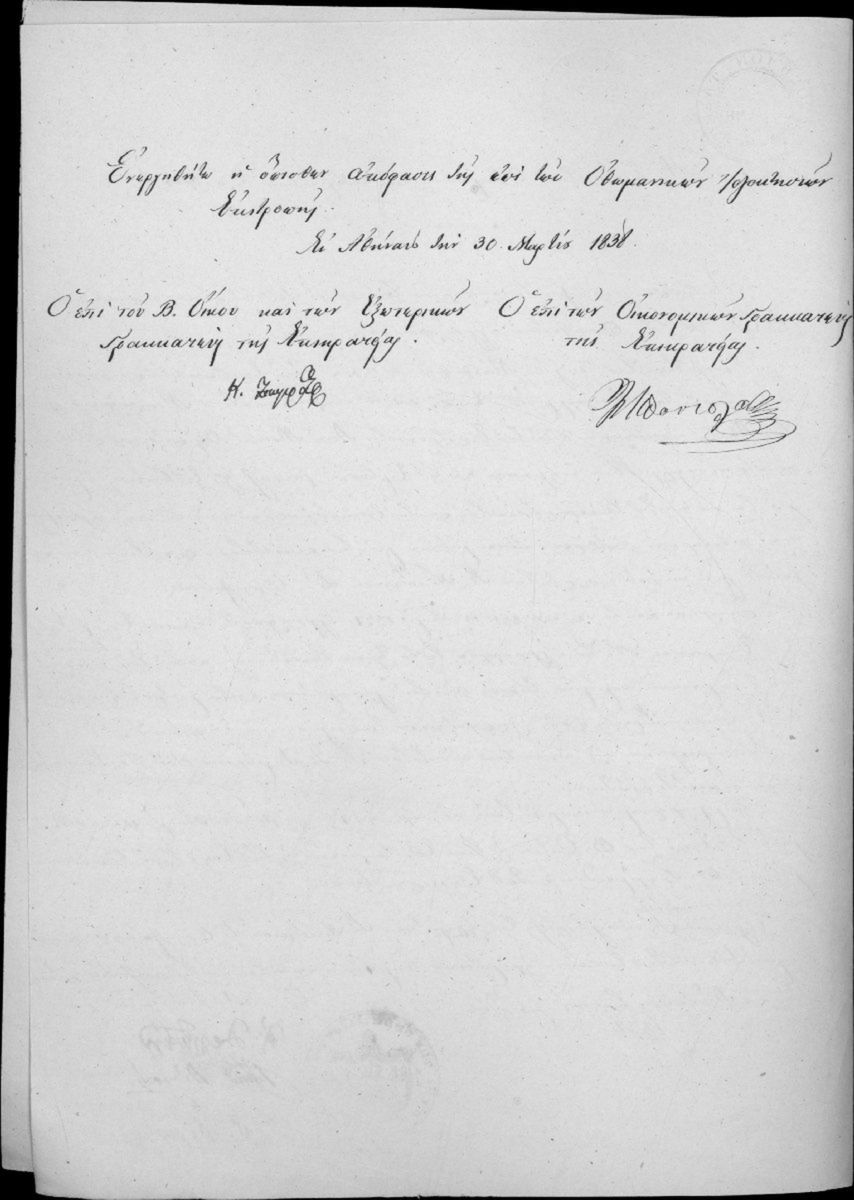 Ἐνεργηθήτω ἡ ὄπισθεν ἀπόφασις τῆς ἐπὶ τῶν Ὀθωμανικῶν Ἰδιοκτησιῶν
Ἐπιτροπῆς.
Ἐν Ἀθήναις τὴν 30 Μαρτίου 1838.
Ὁ ἐπὶ τοῦ Β. Οἴκου καὶ τῶν Ἐξωτερικῶν
Γραμματεὺς τῆς Ἐπικρατείας.
Κ. Ζωγράφος
Ὁ ἐπὶ τῶν Οἰκονομικῶν Γραμματεὺς
τῆς Ἐπικρατείας.